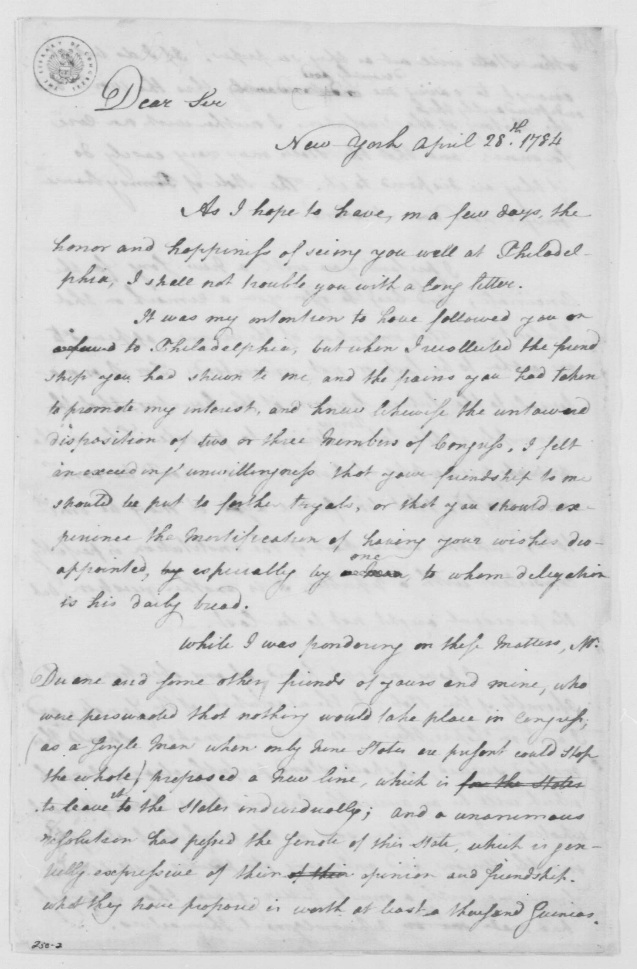 Dear Sir
New York April 28th. 1784
As I hope to have, in a few days, the
honor and happiness of seeing you well at Philadel-
phia, I shall not trouble you with a long letter.
It was my intention to have followed you on
to Philadelphia, but when I recollected the friend
ship you had shewn to me, and the pains you had taken
to promote my interest, and knew likewise the untoward
disposition of two or three Members of Congress, I felt
an exceeding unwillingness that your friendship to me
should be put to farther tryals, or that you should ex-
perience the mortification of having your wishes dis-
appointed, by especially by one to whom delegation
is his daily bread.
While I was pondering on these matters, Mr.
Duane and some other friends of yours and mine, who
were persuaded that nothing would take place in Congress,
(as a single man when only nine States are present could stop
the whole) proposed a new line, which is for the States
to leave it to the States individually; and a unanimous
resolution has passed the Senate of this State, which is gen-
erally expressive of their of their opinion and friendship.
what they have proposed is worth at least a thousand Guineas.
250-2